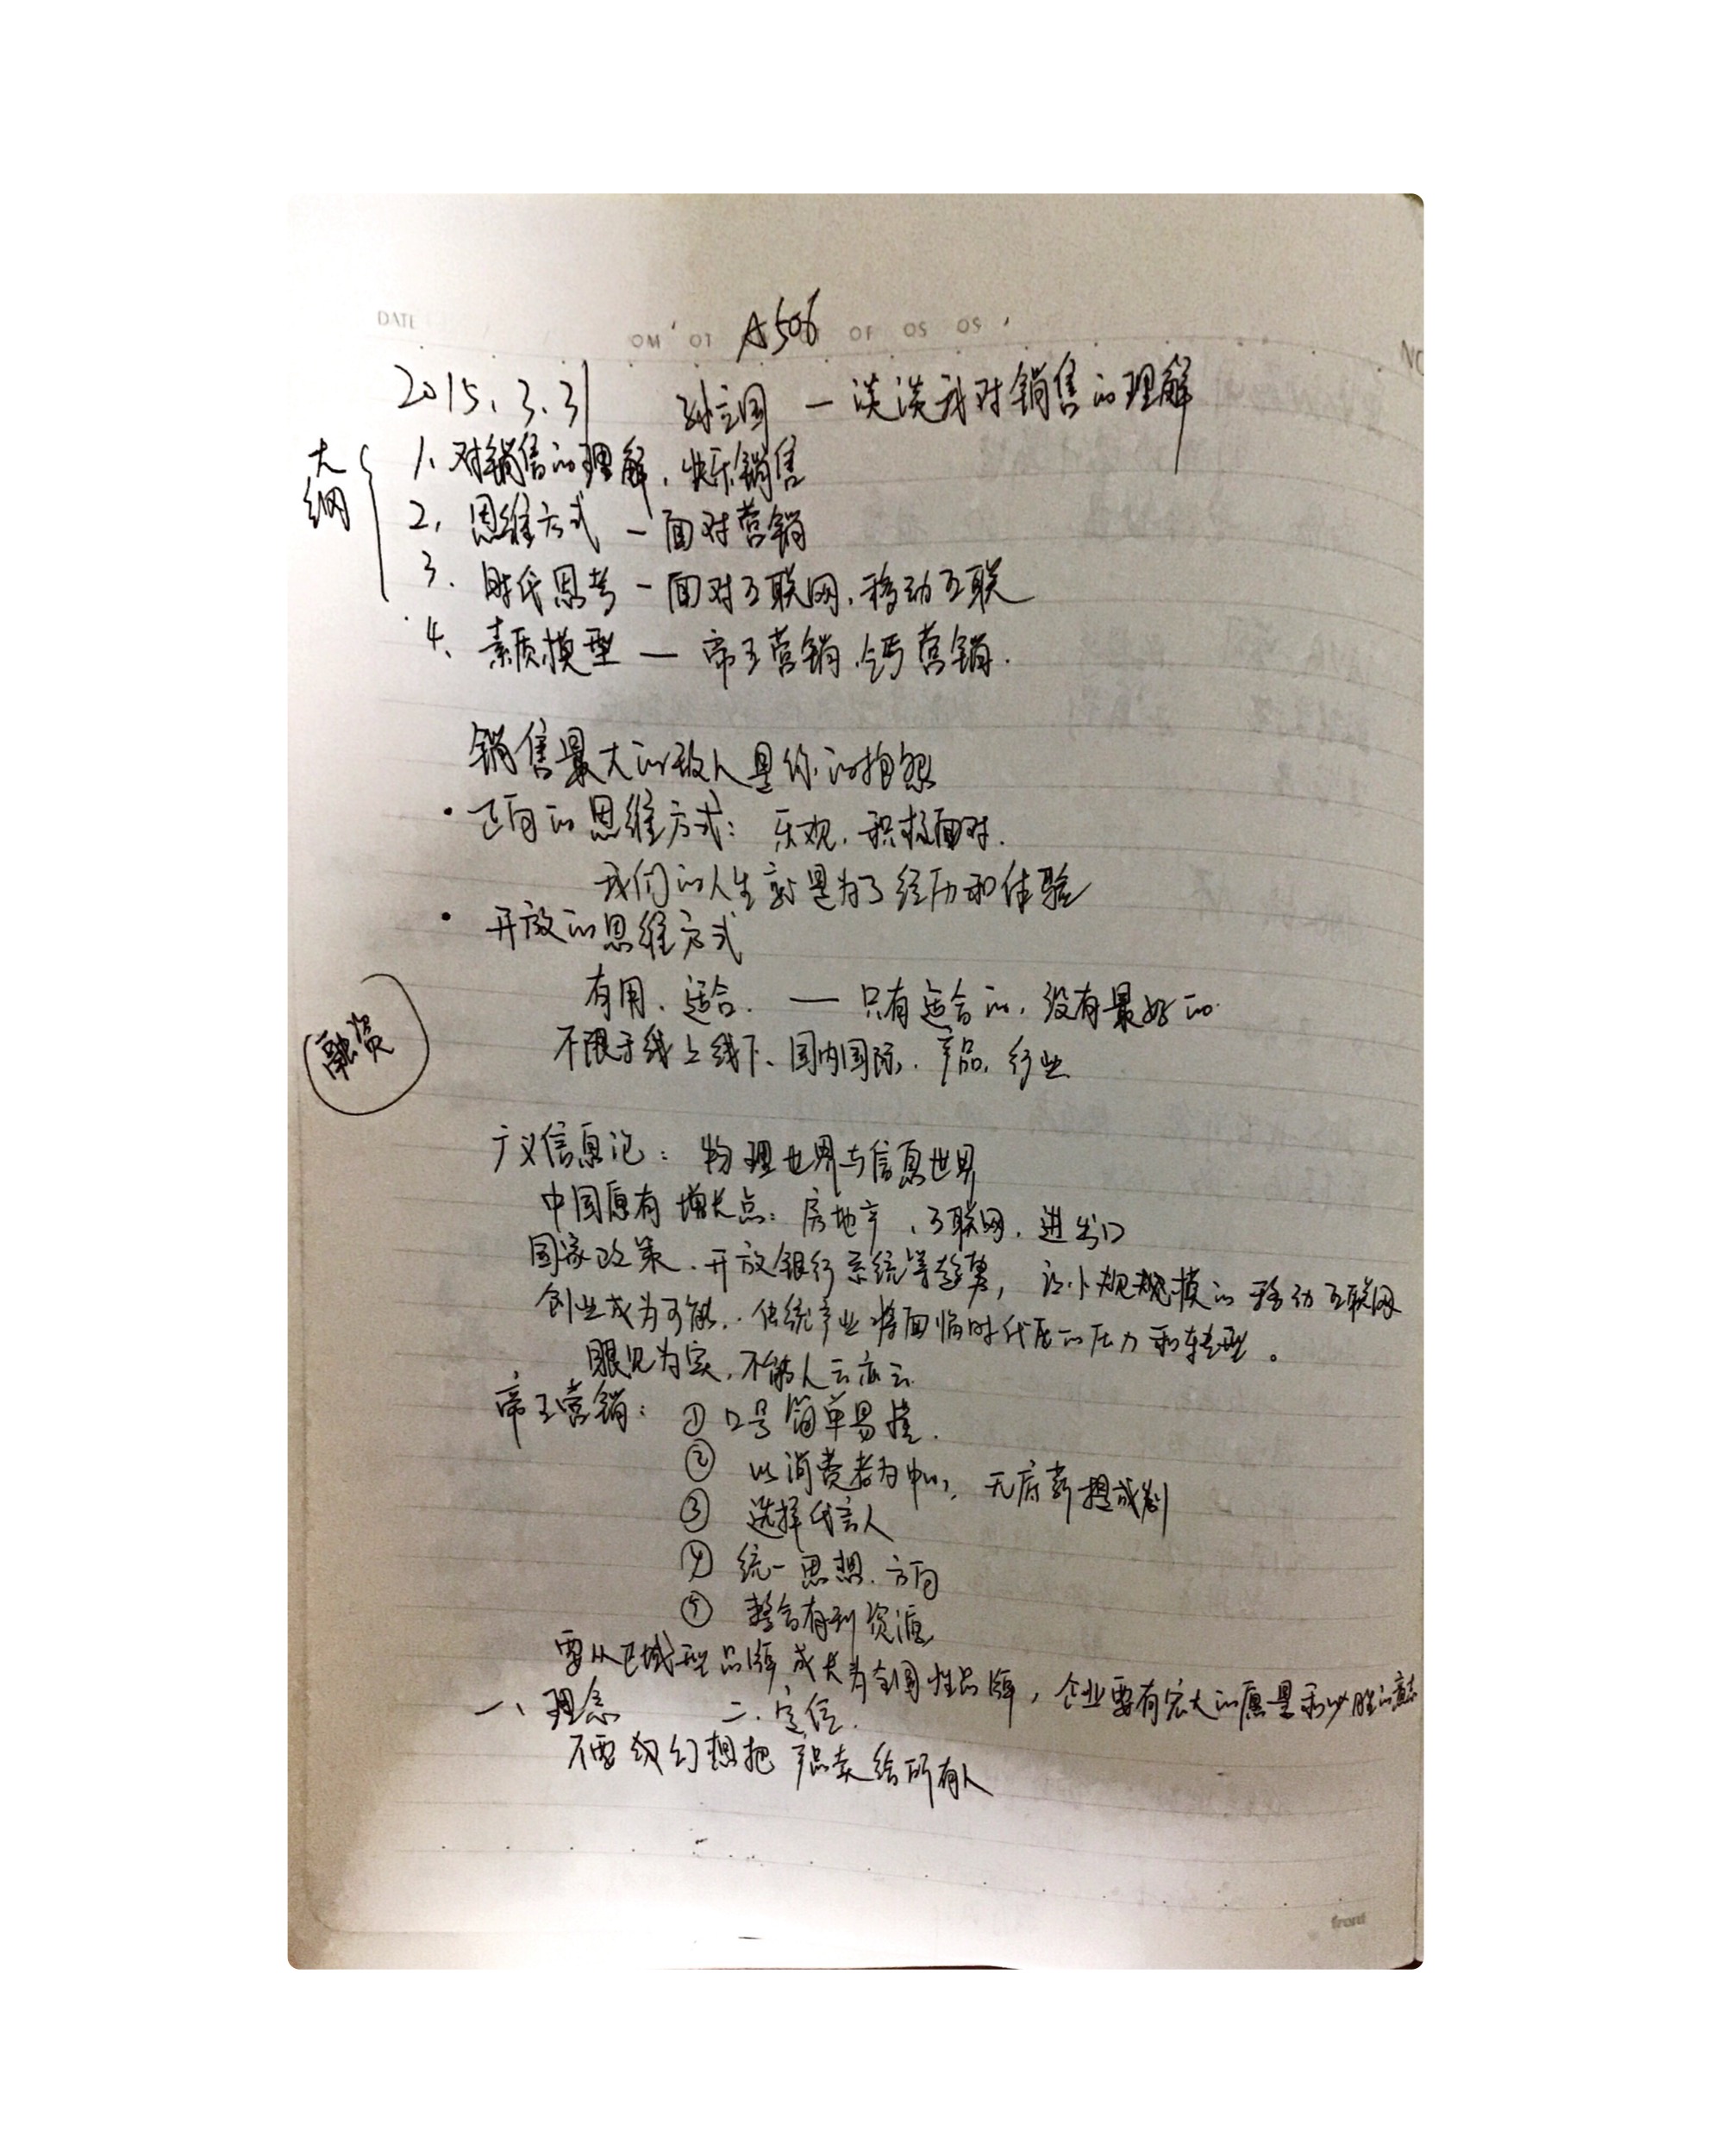 DATE
A506
2015.3.31 孙立国 — 谈谈我对销售的理解
大纲
1、对销售的理解，快乐销售
2、思维方式 — 面对营销
3、时代思考 — 面对互联网、移动互联
4、素质模型 — 帝王营销、钙营销.
销售最大的敌人是你的抱怨
• 正向的思维方式：乐观、积极面对.
我们的人生就是为了经历和体验
• 开放的思维方式
有用、适合. — 只有适合的，没有最好的.
融资
不限于线上线下、国内国际、产品、行业
广义信息论：物理世界与信息世界
中国原有增长点：房地产、互联网、进出口
国家政策、开放银行系统等趋势，让小规规模的移动互联网
创业成为可能. 传统产业将面临时代层的压力和转型。
眼见为实，不能人云亦云
帝王营销：① 口号简单易懂.
② 以消费者为中心，无底薪提成制
③ 选择代言人
④ 统一思想、方向
⑤ 整合有利资源
要从区域型品牌成长为全国性品牌，企业要有宏大的愿景和必胜的意志
一、理念 二、定位.
不要幻想把产品卖给所有人
front